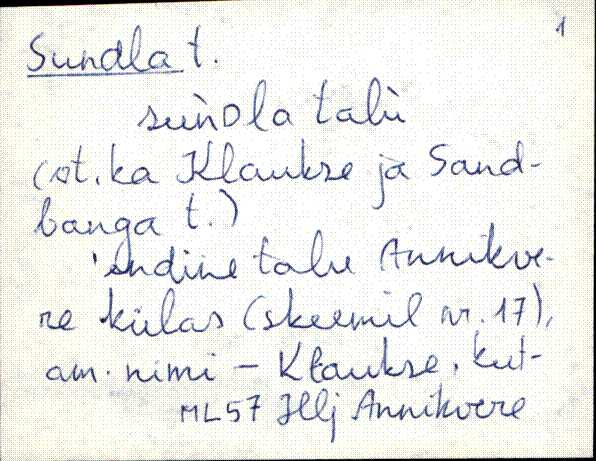 1
Sundla t.
sùnDla talù
(vt. ka Klaukse ja Sand-
banga t.)
'endine talu Annikve-
re külas (skeemil nr. 17),
am. nimi – Klaukse, kut-
ML57 Hlj Annikvere